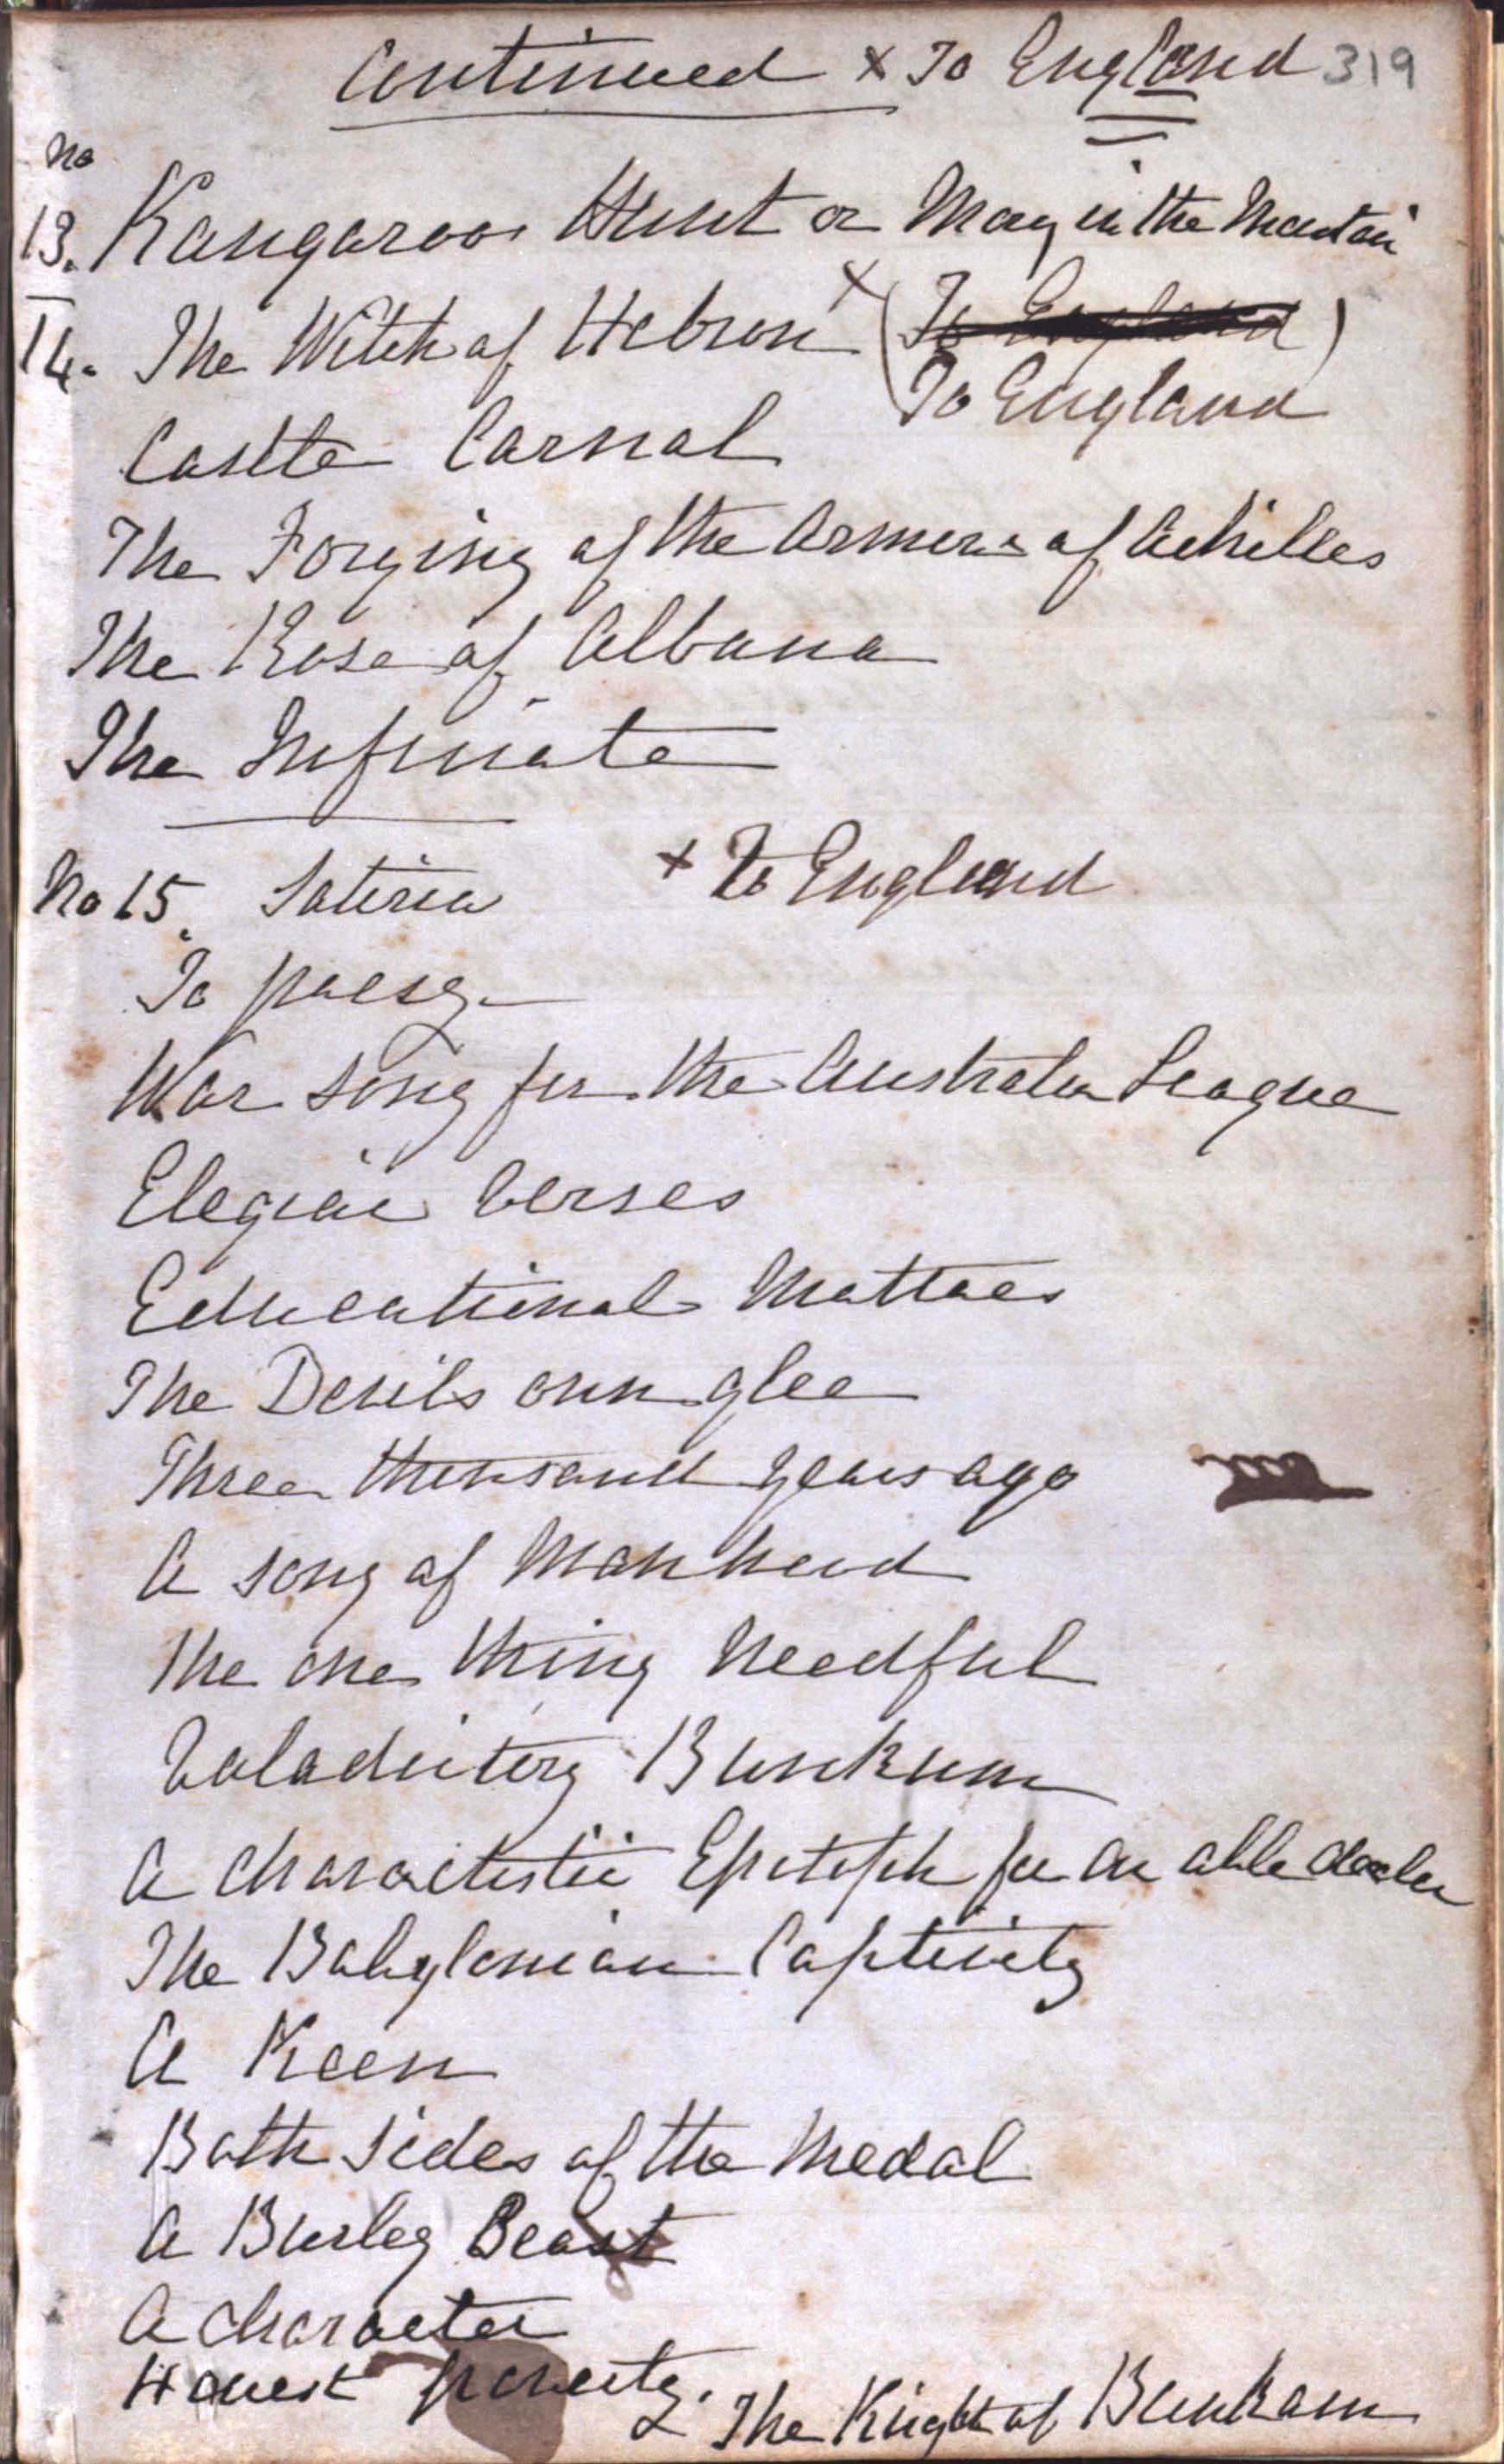 Continued x To England 319
No
13. Kangaroo Hunt or Morg in the Mountai
14. The Witch of Hebron x (To England)
To England
Castle Carnal
The Forging of the Armour of Achilles
The Rose of Albana
The Infinate
No 15. Satirica x To England
To poesy
War song for the Australia League
Elegiac Verses
Educational Mattaes
The Devils own glee
Three thousand years ago
A song of Manhood
The one thing Needful
Valadictory Bunkum
A charactistic Epitaph for an able dealer
The Babylonian Captivity
A Keen
Both sides of the Medal
A Burley Beast
A character
Honest poverty.
& The Knight of Bunkam